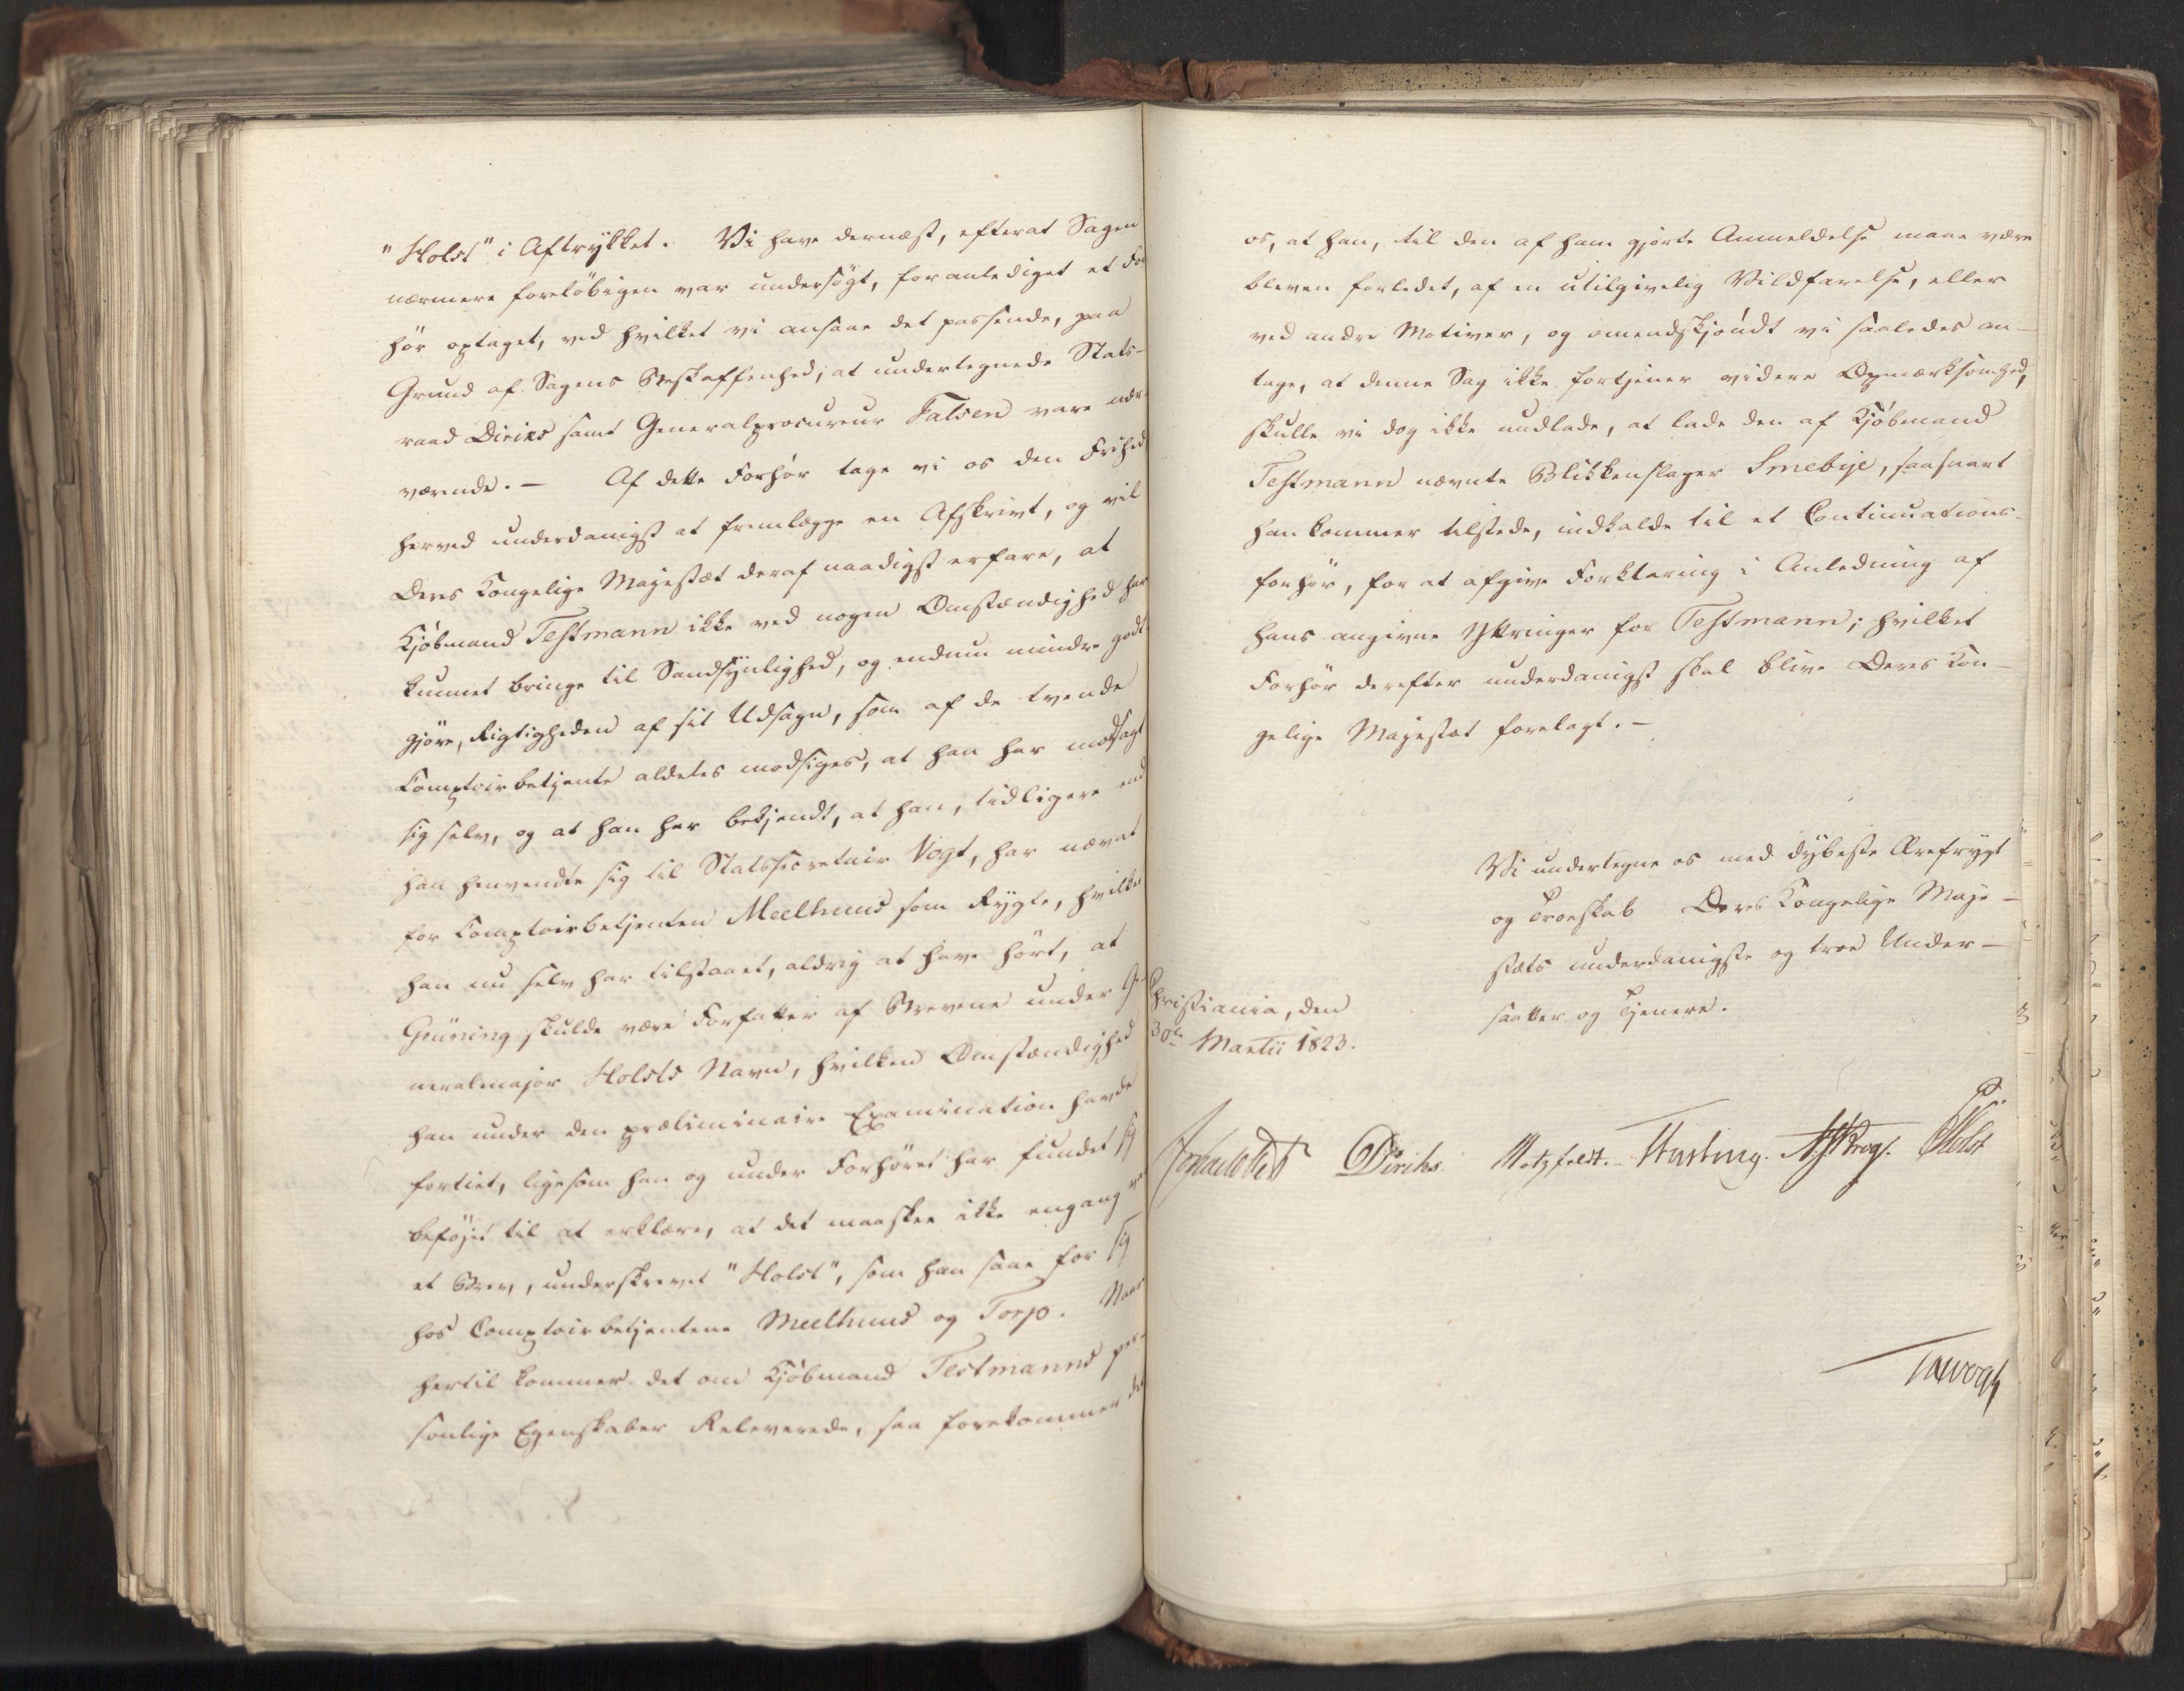 "Holst" i Aftrykket. Vi have dernæst, efterat Sagen
nærmere foreløbigen var undersøgt, foranlediget et For
hør optaget, ved hvilket vi ansaae det passende, paa
Grund af Sagens Beskaffenhed, at undertegnede Stats-
raad Diriks samt Generalprocureur Falsen vare nær-
værende. — Af dette Forhør tage vi os den Frihed
herved underdanigst at fremlægge en Afskrivt, og vil
Deres Kongelige Majestæt deraf naadigst erfare, at
Kjøbmand Testmann ikke ved nogen Omstændighed har
kunnet bringe til Sandsynlighed, og endnu mindre godt-
gjøre, Rigtigheden af sit Udsagn, som af de tvende
Comptoirbetjente aldeles modsiges, at han har modsagt
sig selv, og at han har bekjendt, at han, tidligere end
han henvendte sig til Statssecretair Vogt, har nævnt
for Comptoirbetjenten Meelhuus som Rygte, hvilket
han nu selv har tilstaaet, aldrig at have hørt, at
Grüning skulde være Forfatter af Brevene under Ge-
neralmajor Holsts Navn, hvilken Omstændighed
han under den præliminaire Examination havde
fortiet, ligesom han og under Forhøret har fundet sig
beføjet til at erklære, at det maaskee ikke engang var
et Brev, underskrevet "Holst", som han saae for sig
hos Comptoirbetjentene Meelhuus og Torp. Naar
hertil kommer det om Kjøbmand Testmanns per-
sonlige Egenskaber Releverede, saa forekommer det
os, at han, til den af ham gjorte Anmeldelse maae være
bleven forledet, af en utilgivelig Vildfarelse, eller
ved andre Motiver, og omendskjøndt vi saaledes an-
tage, at denne Sag ikke fortjener videre Opmærksomhed,
skulle vi dog ikke undlade, at lade den af Kjøbmand
Testmann nævnte Blikkenslager Smebye, saasnart
han kommer tilstede, indkalde til et Continuations-
forhør, for at afgive Forklaring i Anledning af
hans angivne Yttringer for Testmann; hvilket
Forhør derefter underdanigst skal blive Deres Kon-
gelige Majestæt forelagt. —
Vi undertegne os med dybeste Ærefrygt
og Troeskab Deres Kongelige Maje-
stæts underdanigste og troe Under-
saatter og Tjenere.
Christiania, den
30te Martii 1823.
Diriks. Motzfeldt. Fasting. Krog. Holst